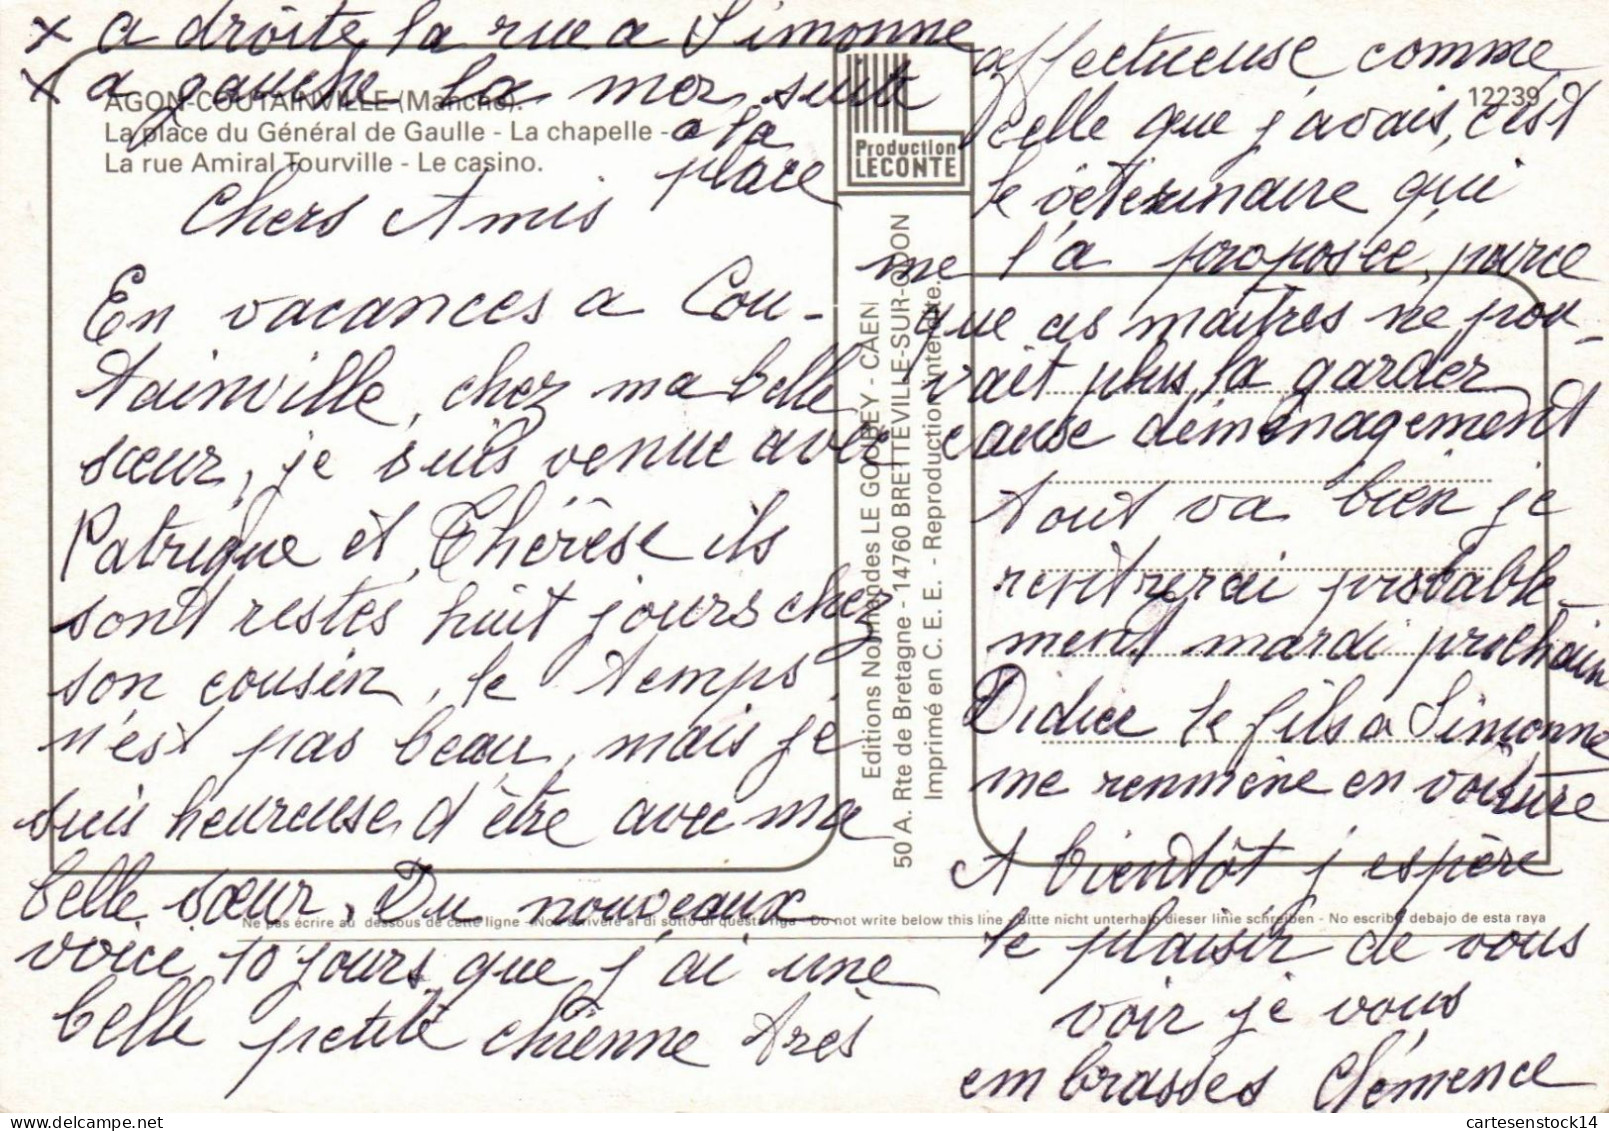 x a drôite, la rue a Simonne
x a gauche la mer, suit
a la
place
AGON-COUTAINVILLE (Manche).
La place du Général de Gaulle - La chapelle -
La rue Amiral Tourville - Le casino.
Chers Amis
En vacances a Cou-
tainville, chez ma belle
sœur, je suis venue avec
Patrique et Thérèse ils
sont restés huit jours chez
son cousin, le temps
n'est pas beau, mais je
suis heureuse d'être avec ma
belle sœur. Du nouveaux
voici 10 jours que j'ai une
belle petite chienne très
Production
LECONTE
Editions Normandes LE GOUBEY - CAEN
50 A. Rte de Bretagne - 14760 BRETTEVILLE-SUR-ODON
Imprimé en C. E. E. - Reproduction interdite.
12239
affectueuse comme
celle que j'avais, c'est
le véterinaire qui
me l'a proposée, parce
que ces maîtres ne pou-
vait plus la garder
cause déménagement
tout va bien je
rentrerai probable-
ment mardi prochain
Didier le fils a Simonne
me remmène en voiture
A bientôt j espère
le plaisir de vous
voir je vous
embrasses Clémence
Ne pas écrire au dessous de cette ligne - Non scrivere al di sotto di questa riga - Do not write below this line - Bitte nicht unterhalb dieser linie schreiben - No escribe debajo de esta raya
cartesenstock14